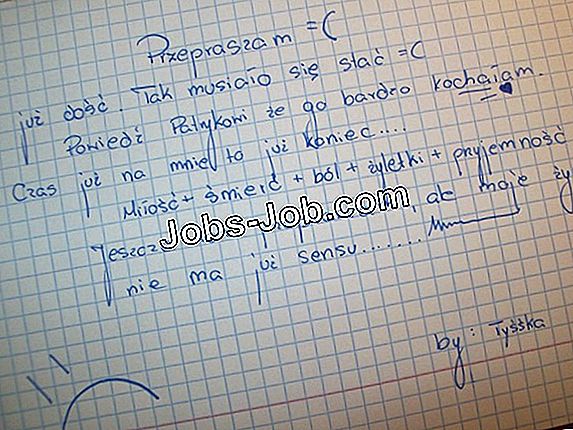 Przepraszam =(
już dość. Tak musiało się stać =(
Powiedź Patrykowi że go bardzo kochałam.
Czas już na mnie! to już koniec....
Miłość + śmierć + ból + żyletki + przyjemność
Jeszcze , ale moje ży
nie ma już sensu.......
by: Tyśśka
Jobs-Job.com